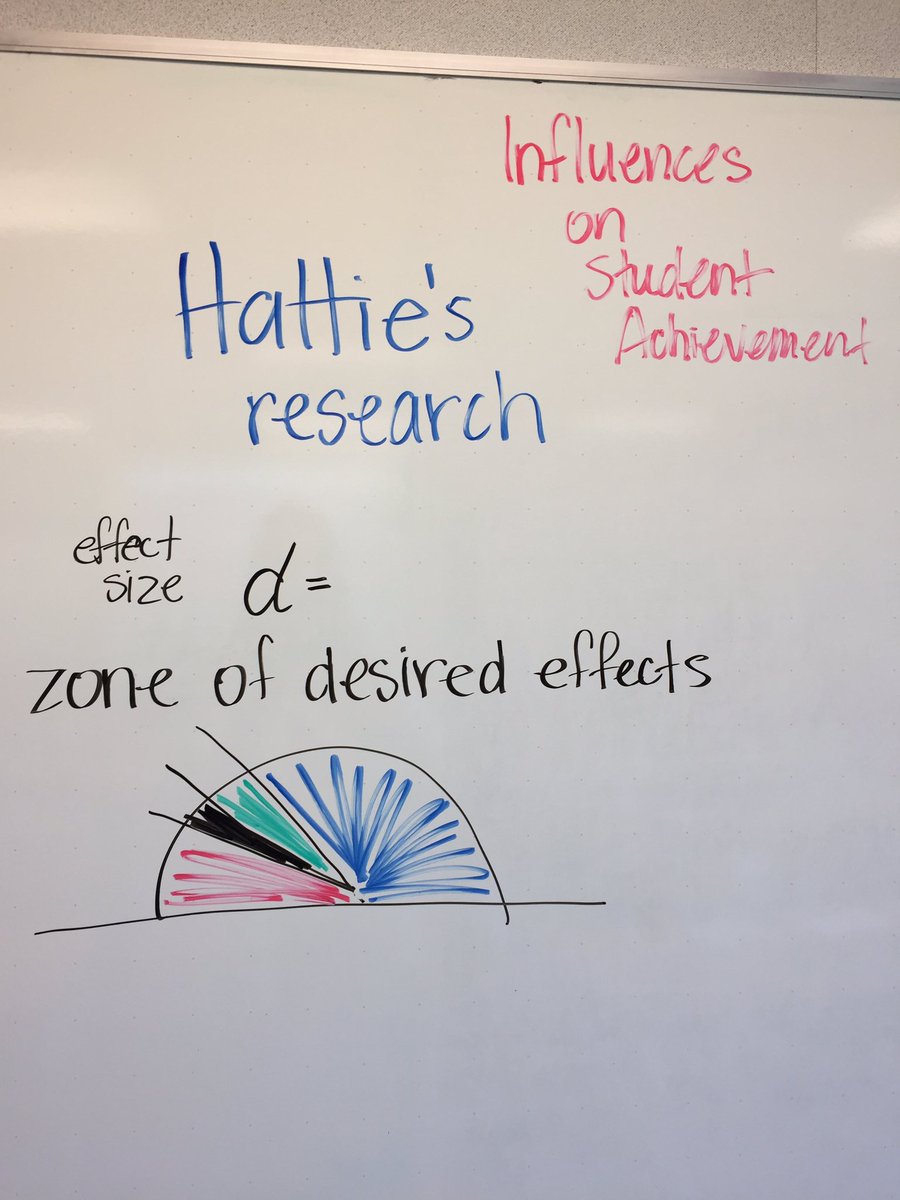 Influences
on
Student
Achievement
Hattie's
research
effect
size d =
zone of desired effects